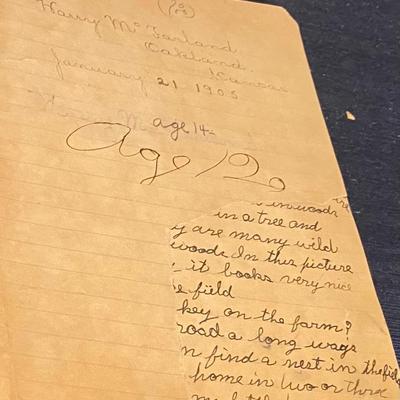 Harry McFarland
Oakland
Kansas
January 21 1905
age 14
Age 12
in woods
in a tree and
y are many wild
woods. In this picture
it books very nice
e field
key on the farm?
road a long ways
n find a nest in the field
home in two or three